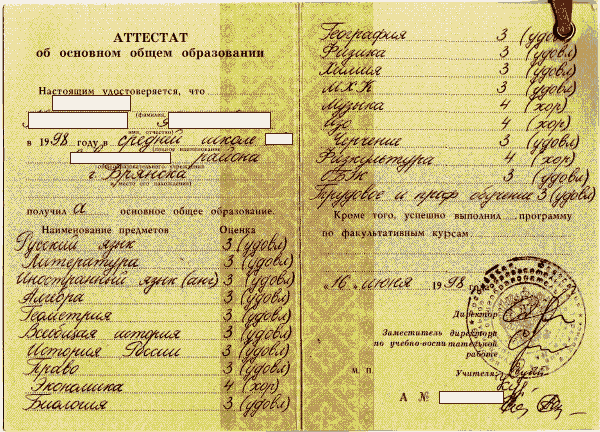 АТТЕСТАТ
об основном общем образовании
Настоящим удостоверяется, что
(фамилия,
имя, отчество)
в 1998 году в средней школе
(полное наименование
общеобразовательного учреждения
района
г. Брянска
(место его нахождения)
получила основное общее образование.
Наименование предметов Оценка
Русский язык 3 (удовл)
Литература 3 (удовл)
Иностранный язык (анг) 3 (удовл)
Алгебра 3 (удовл)
Геометрия 3 (удовл)
Всеобщая история 3 (удовл)
История России 3 (удовл)
Право 3 (удовл)
Экономика 4 (хор)
Биология 3 (удовл)
География 3 (удовл)
Физика 3 (удовл)
Химия 3 (удовл)
МХК 3 (удовл)
Музыка 4 (хор)
ИЗО 4 (хор)
Черчение 3 (удовл)
Физкультура 4 (хор)
ОБЖ 3 (удовл)
Трудовое и проф обучение 3 (удовл)
Кроме того, успешно выполнил программу
по факультативным курсам
«16» июня 1998 года
Директор
Заместитель директора
по учебно-воспитательной
работе
Учителя:
М. П.
А №